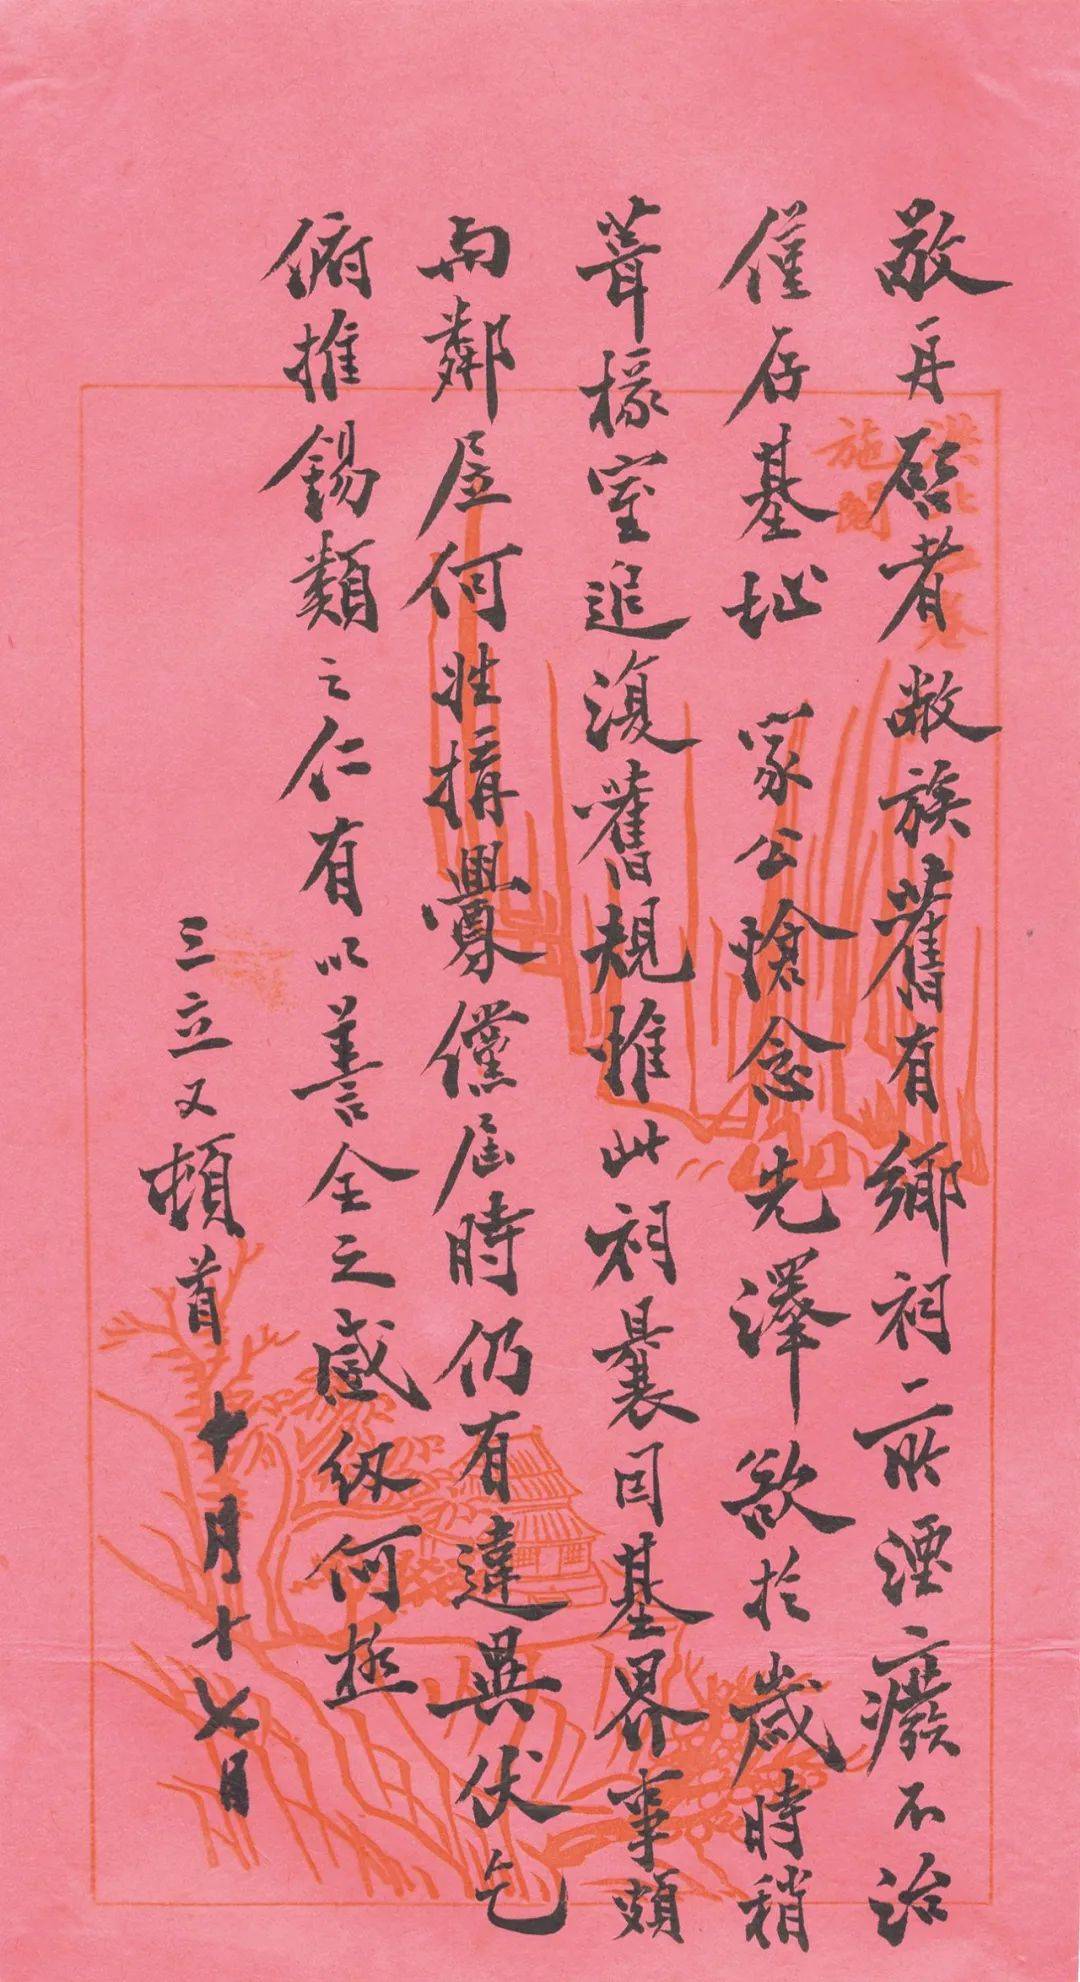 敬再啓者敝族舊有鄉祠一所湮廢不治
僅存基址 家公愴念先澤欲於歲時稍
葺椽室追復舊規惟此祠曩因基界事頗
与鄰屋何姓搆釁儻屆時仍有違異伏乞
俯推錫類之仁有以善全之感紉何極
三立又頓首 十月十七日
洪北江卷
施閣